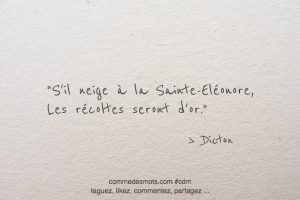 "S'il neige à la Sainte-Eléonore,
Les récoltes seront d'or."
> Dicton
commedesmots.com #cdm
taguez, likez, commentez, partagez ...